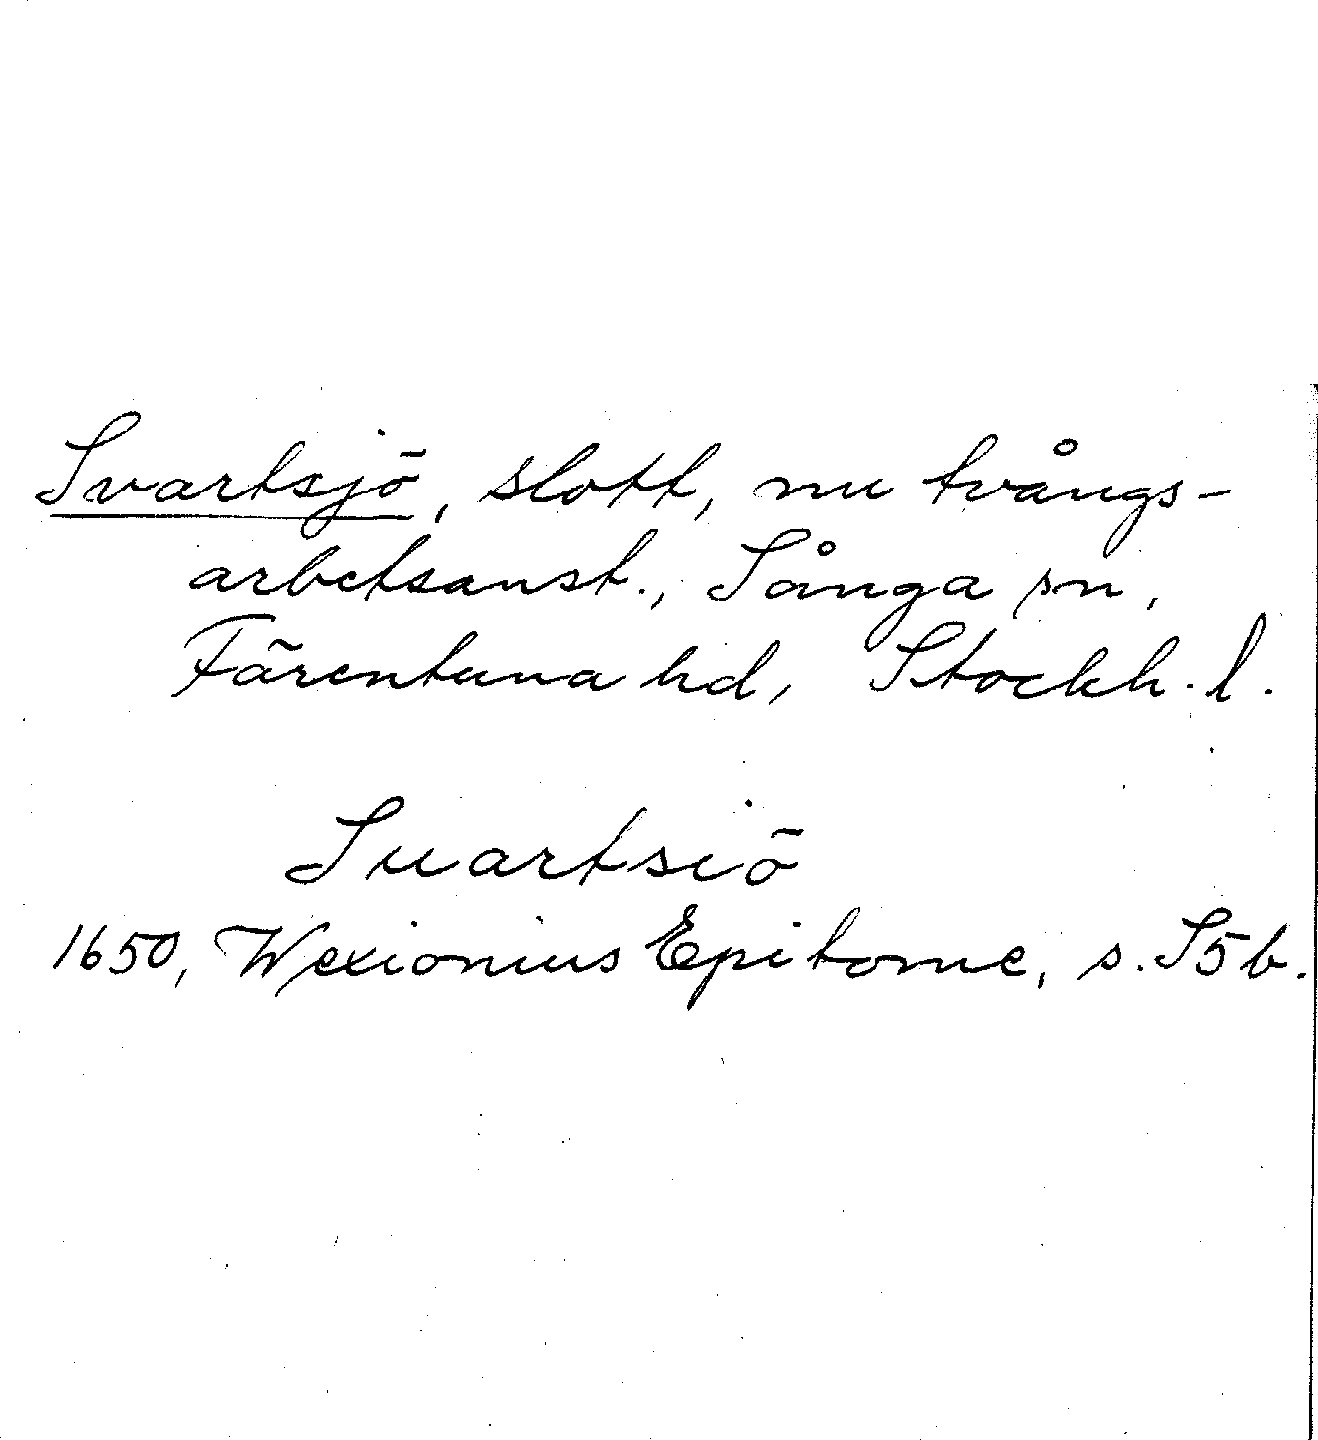 Svartsjö, slott, nu tvångs-
arbetsanst., Sånga sn,
Färentuna hd, Stockh. l.
Suartsiö
1650, Wexionius Epitome, s. S5b.